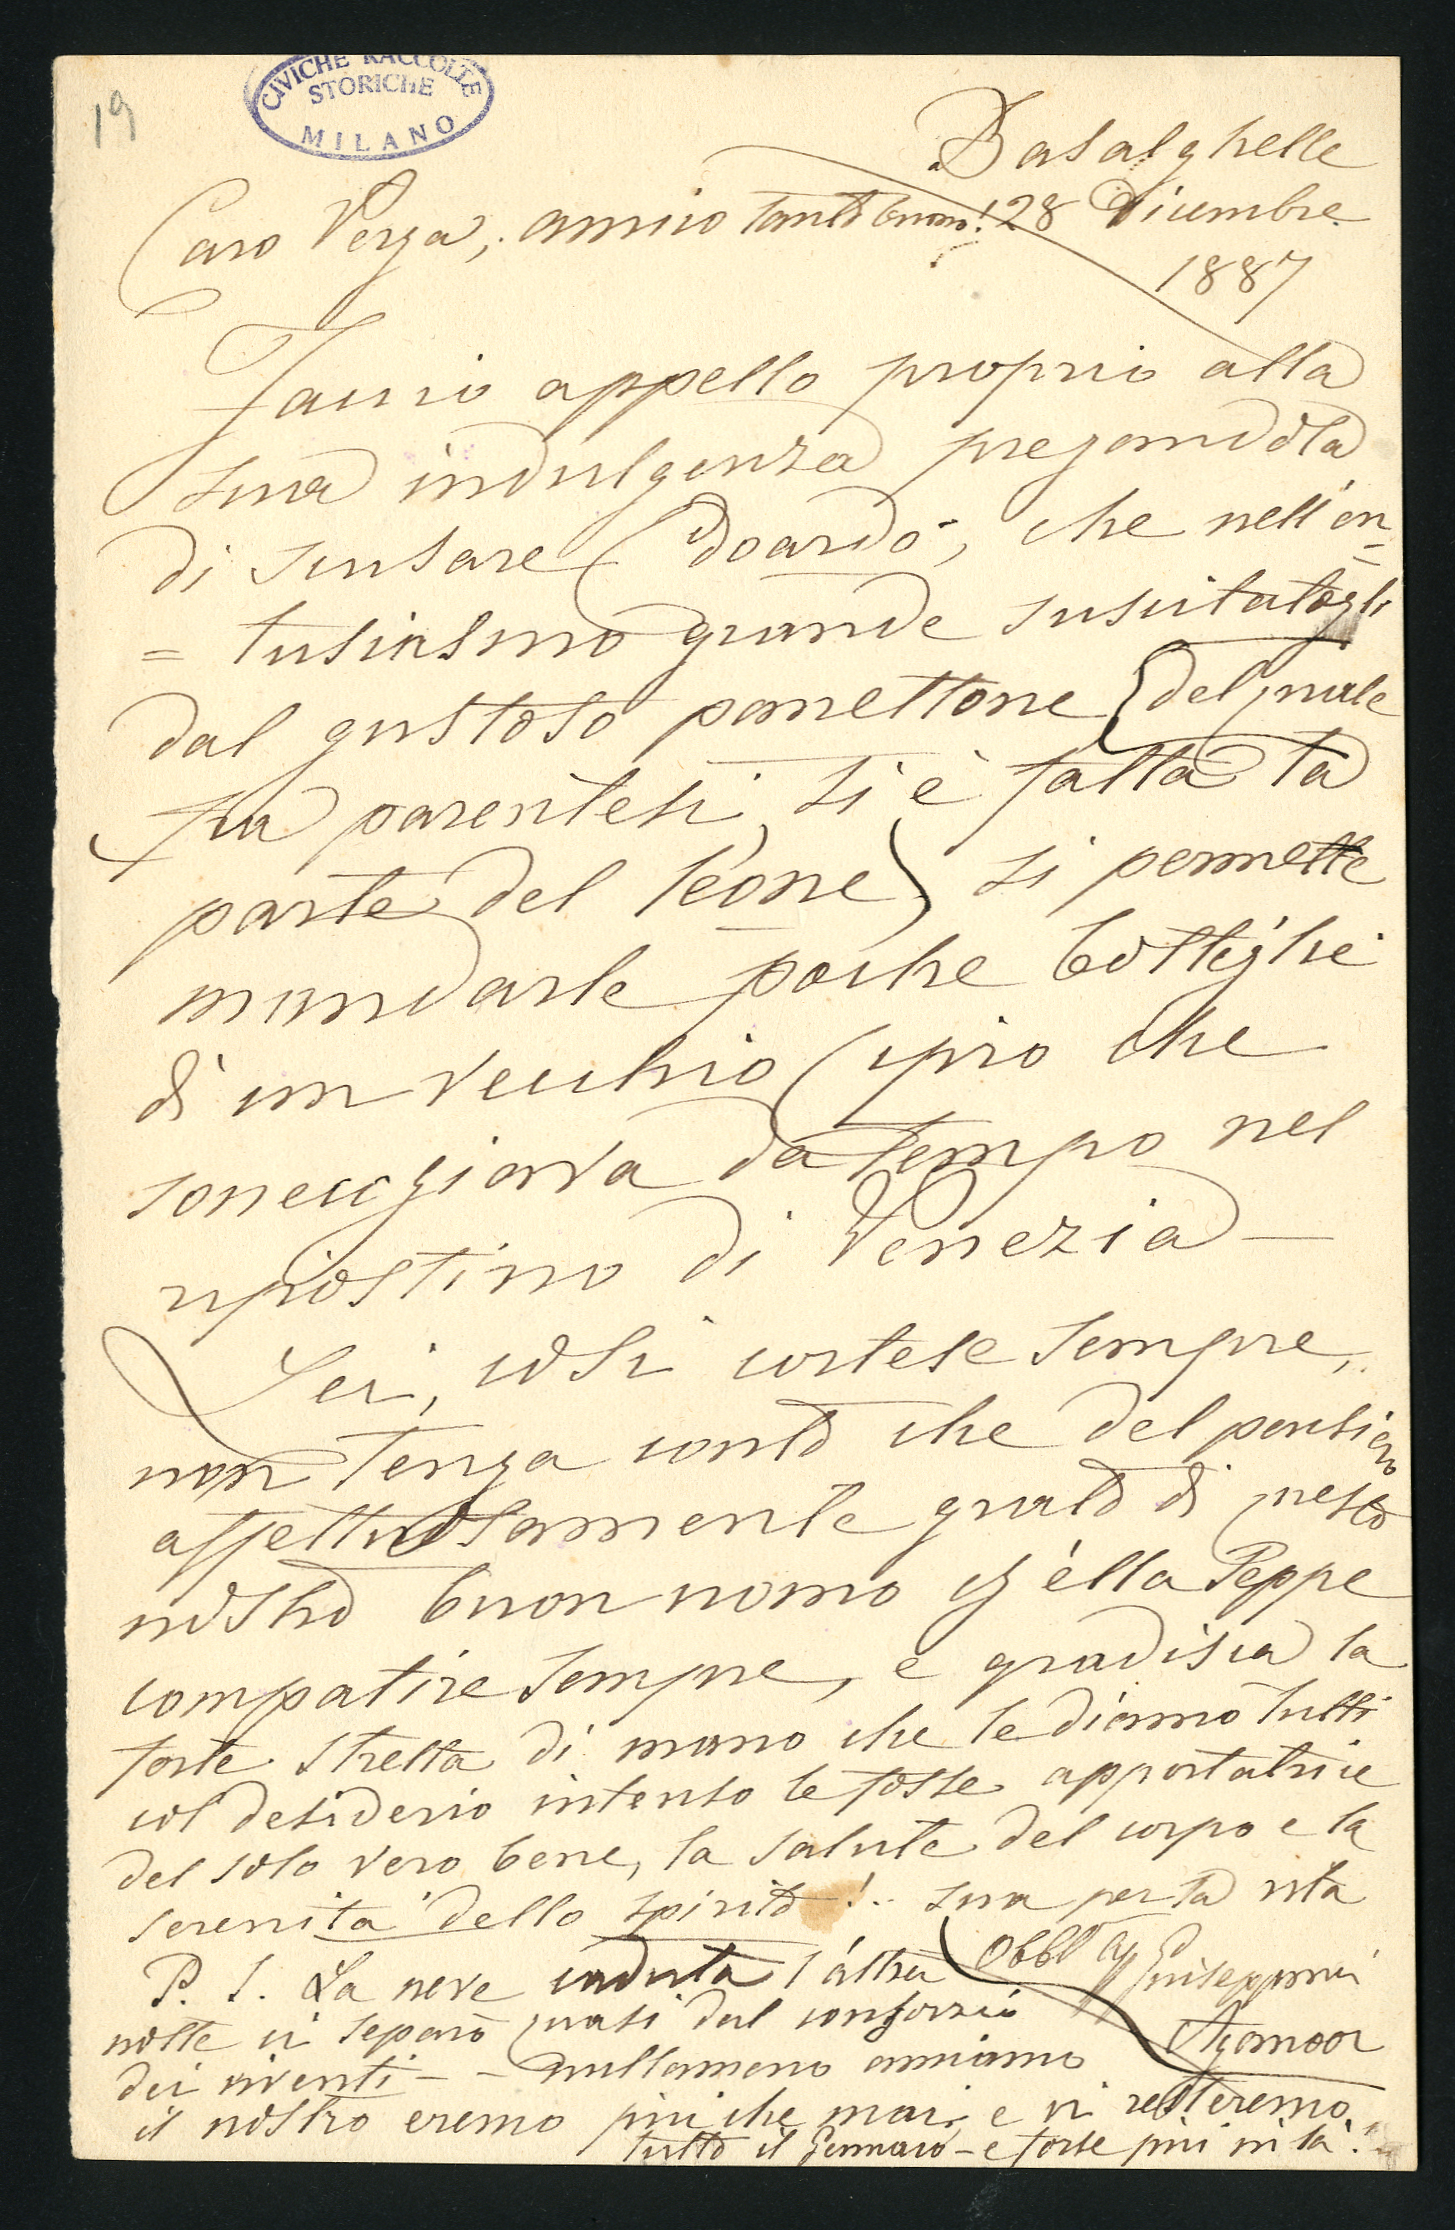 19
CIVICHE RACCOLTE
STORICHE
MILANO
Basalghelle
28 Dicembre
1887
Caro Verga, amico tanto buono!
Faccio appello proprio alla
sua indulgenza pregandola
di scusare Edoardo, che nell'en=
=tusiasmo grande suscitatogli
dal gustoso panettone (del quale
fra parentesi, si è fatta la
parte del leone) si permette
mandarle poche bottiglie
di un vecchio Cipro che
sonecchiava da tempo nel
ripostino di Venezia —
Lei, così cortese sempre,
non tenga conto che del pensiero
affettuosamente grato di questo
nostro buon uomo ch'ella seppe
compatire sempre, e gradisca la
forte stretta di mano che le diamo tutti
col desiderio intenso le fosse apportatrice
del solo vero bene, la salute del corpo e la
serenità dello spirito!.. sua per la vita
Obbl Giuseppina
Aganoor
P. S. La neve caduta l'altra
notte ci separò quasi dal consorzio
dei viventi — - nullameno amiamo
il nostro eremo più che mai e vi resteremo
tutto il Gennaio — e forse più in là!